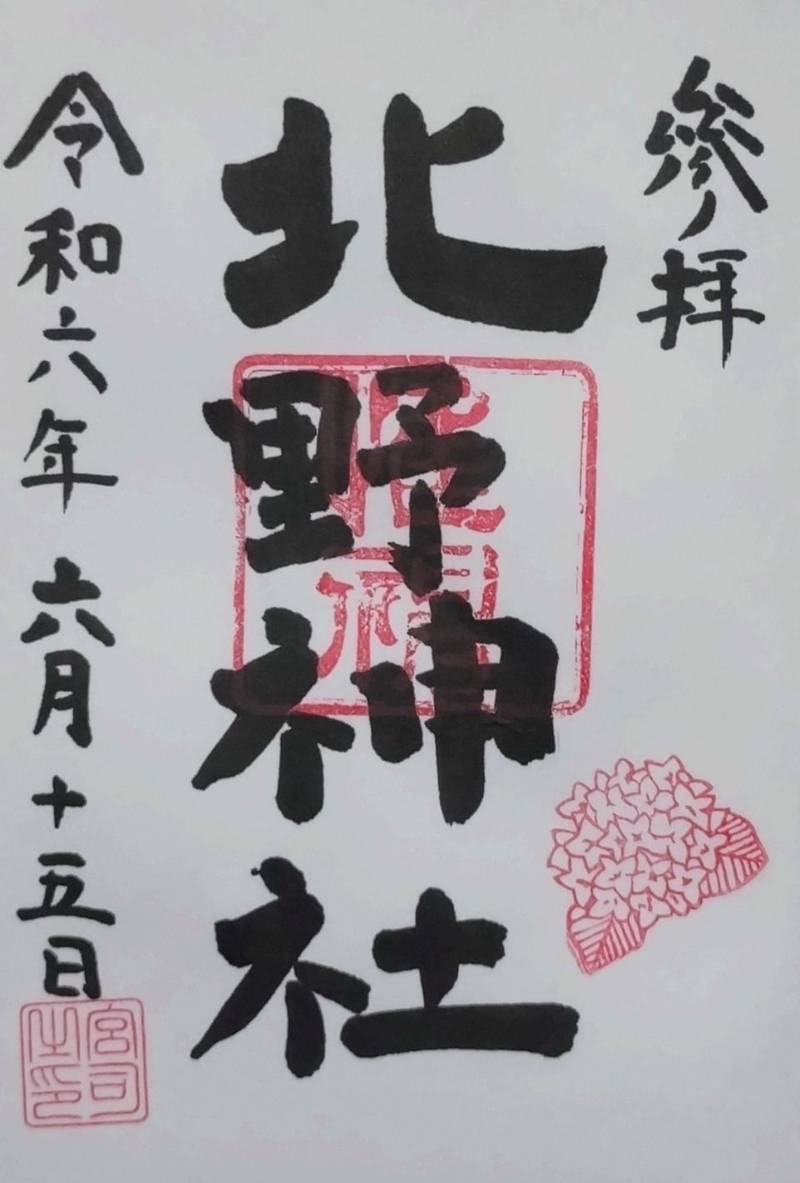 參拝
北野神社
令和六年 六月十五日
宮司之印